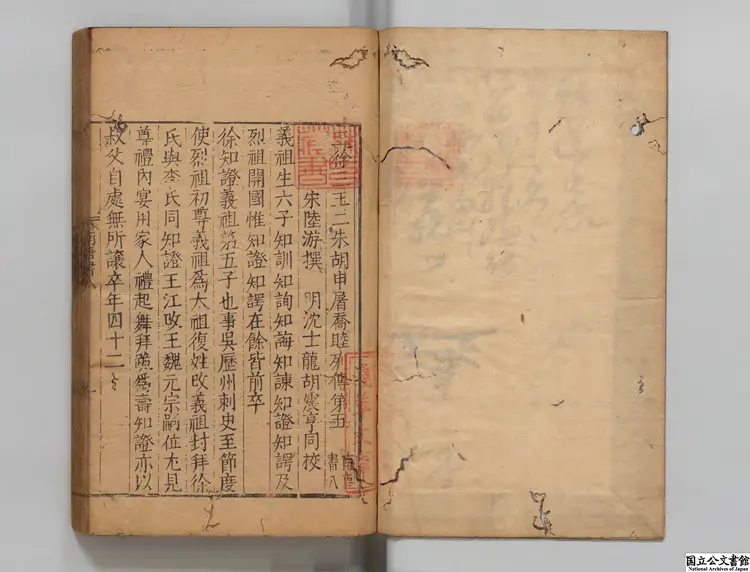 徐三王二朱胡申屠喬睦列傳第五 南唐書八
宋陸游撰 明沈士龍胡震亨同校
義祖生六子知訓知詢知誨知諫知證知諤及
烈祖開國惟知證知諤在餘皆前卒
徐知證義祖第五子也事吳歷州刺史至節度
使烈祖初尊義祖爲太祖復姓改義祖封拜徐
氏與李氏同知證王江改王魏元宗嗣位尤見
尊禮內宴用家人禮起舞拜觴爲壽知證亦以
叔父自處無所讓卒年四十二
南唐書八
国立公文書館
National Archives of Japan